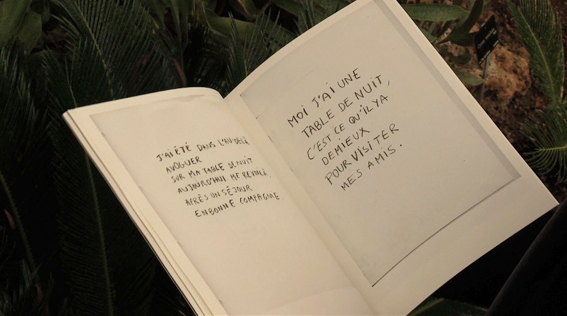 J'AI ÉTÉ DANS L'AU DELÀ
VOGUER
SUR MA TABLE DE NUIT
AUJOURD'HUI ME REVOILÀ
APRÈS UN SÉJOUR
EN BONNE COMPAGNIE
MOI J'AI UNE
TABLE DE NUIT,
C'EST CE QU'IL Y A
DE MIEUX
POUR VISITER
MES AMIS.